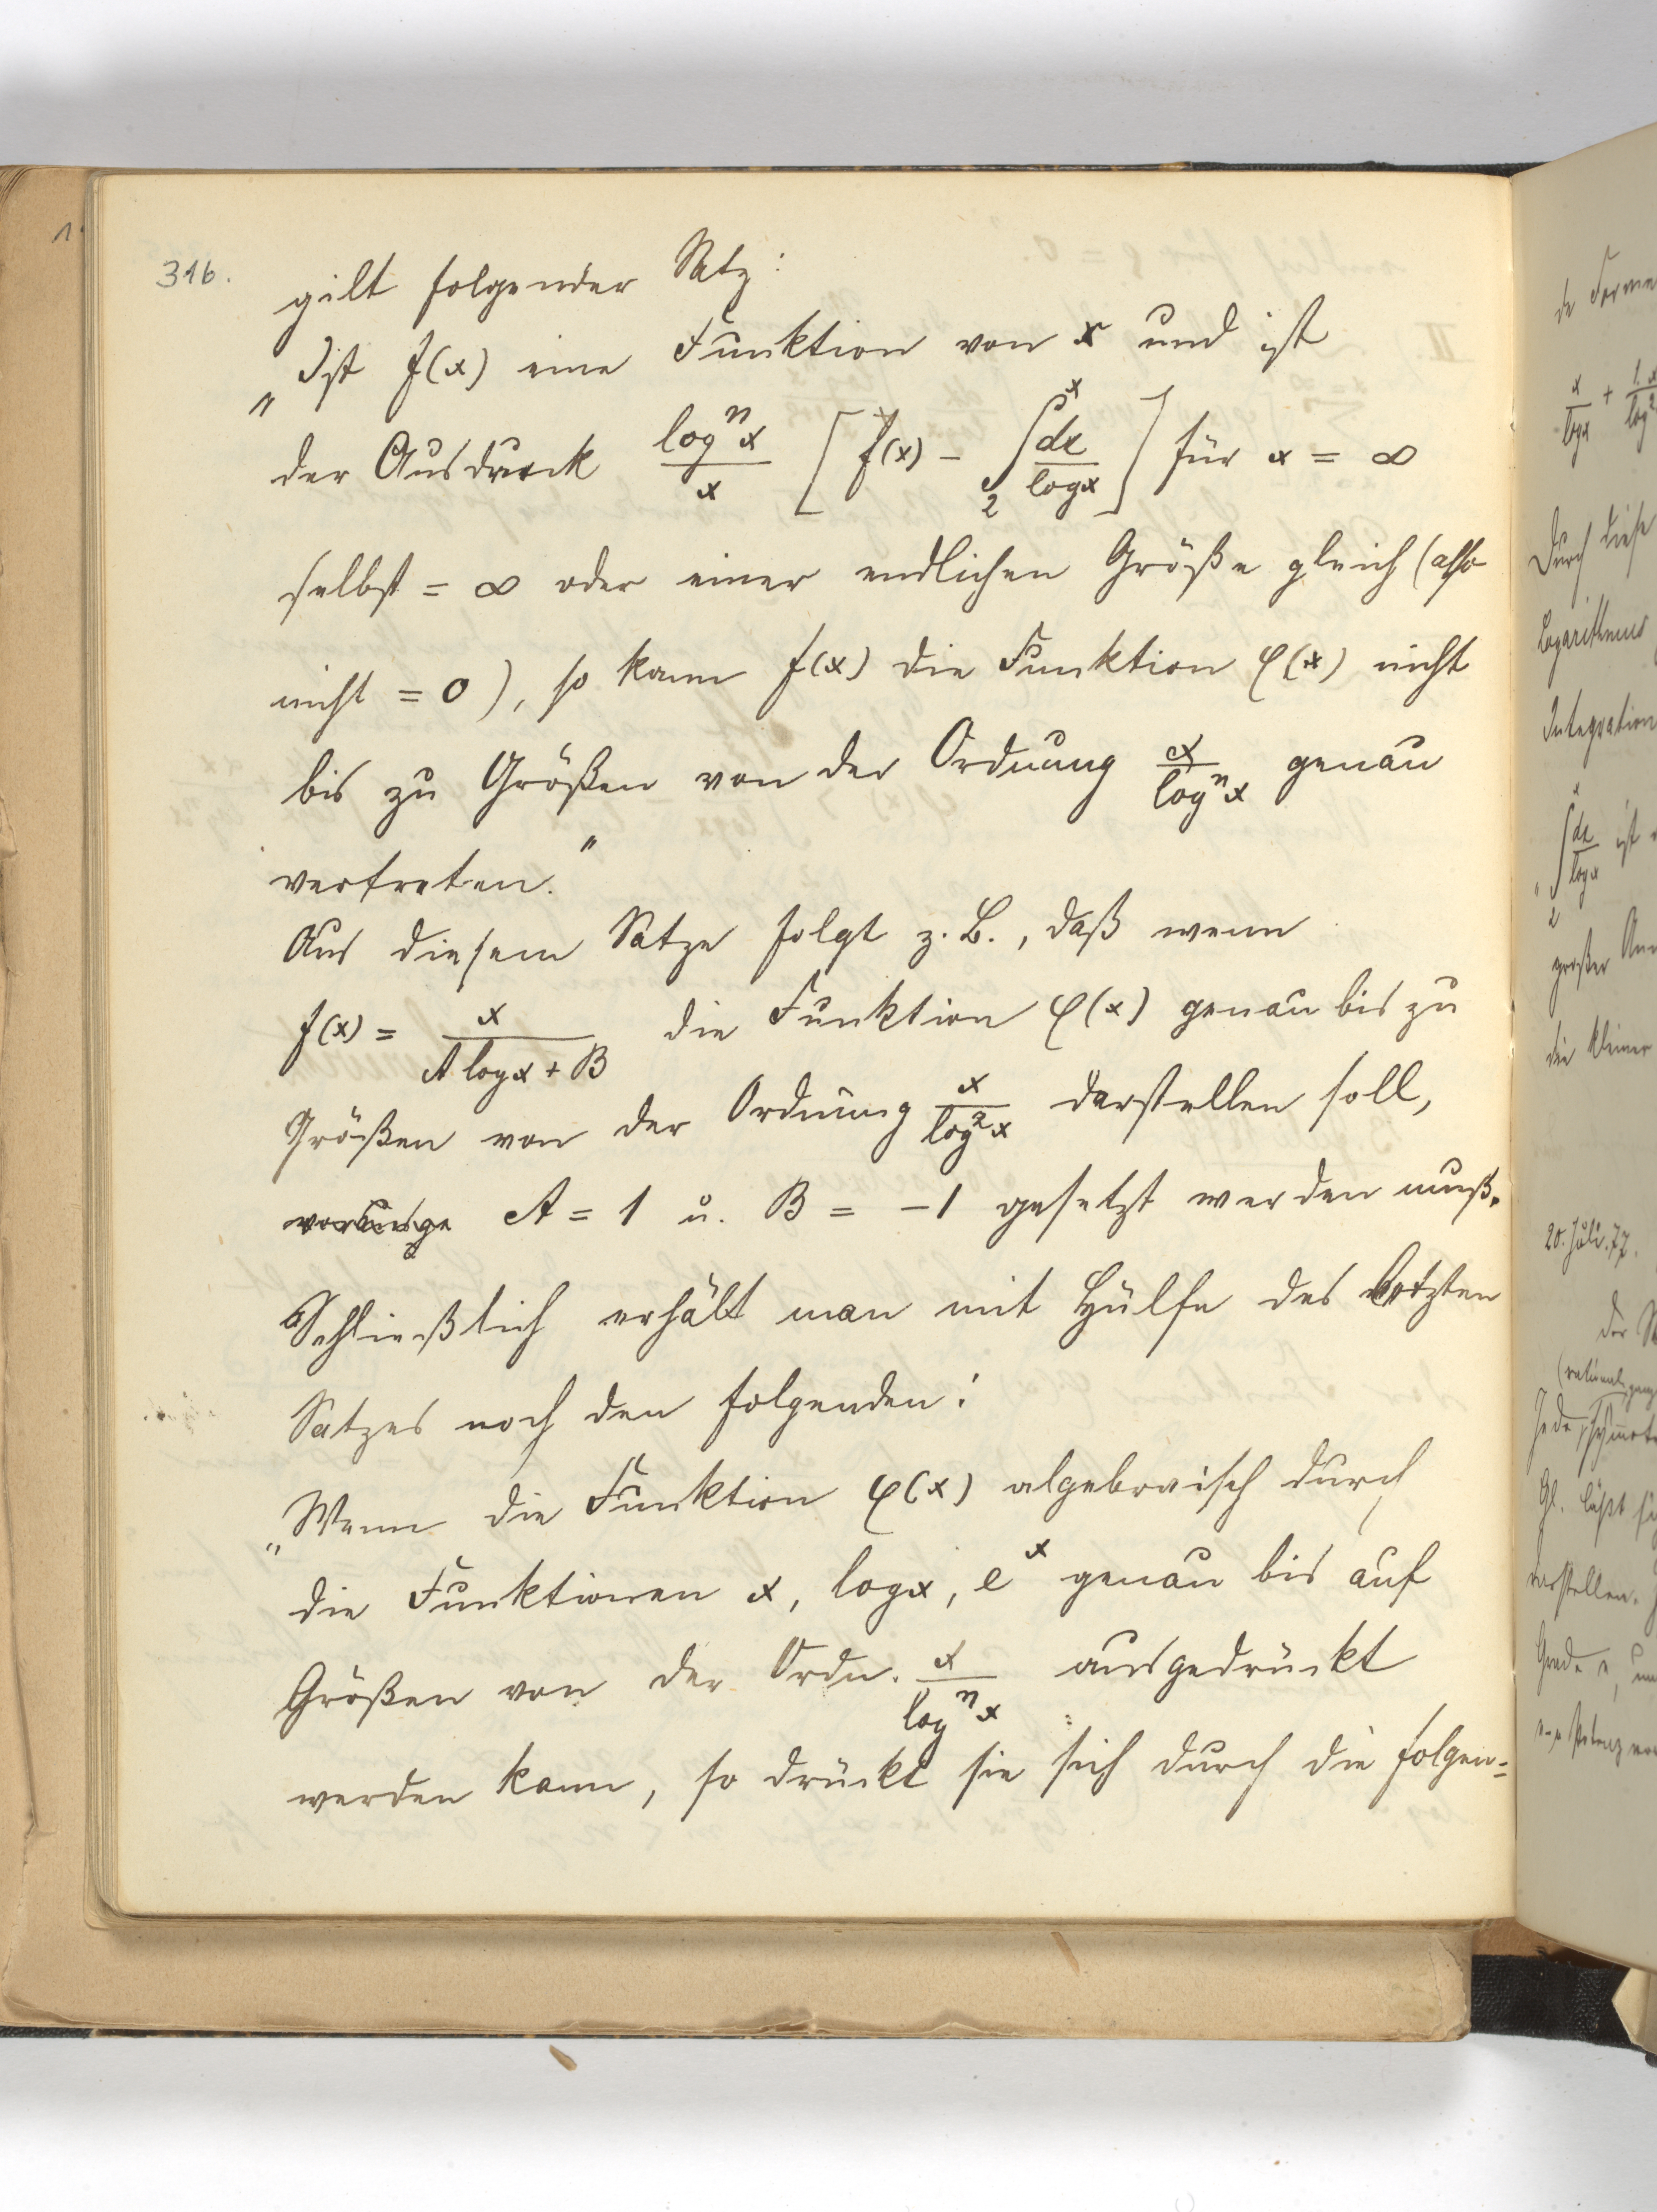 316.
gilt folgender Satz:
„Ist f(x) eine Funktion von x und ist
der Ausdruck log^n x / x [f(x) - ∫_2^x dx / log x] für x = ∞
selbst = ∞ oder einer endlichen Größe gleich (also
nicht = 0), so kann f(x) die Funktion φ(x) nicht
bis zu Größen von der Ordnung x / log^n x genau
vertreten."
Aus diesem Satze folgt z. B., daß wenn
f(x) = x / A log x + B die Funktion φ(x) genau bis zu
Größen von der Ordnung x / log^2 x darstellen soll,
A = 1 u. B = -1 gesetzt werden muß.
Schließlich erhält man mit Hülfe des letzten
Satzes noch den folgenden:
„Wenn die Funktion φ(x) algebraisch durch
die Funktionen x, log x, e^x genau bis auf
Größen von der Ordn. x / log^n x ausgedrückt
werden kann, so drückt sie sich durch die folgen=
de
x / log x +
Durch diese
Logarithmus
Integration
„∫_2^x dx / log x ist
großer
die kleiner
20. Juli. 77.
Der
Jede
Gl. läßt
darstellen.
Grade